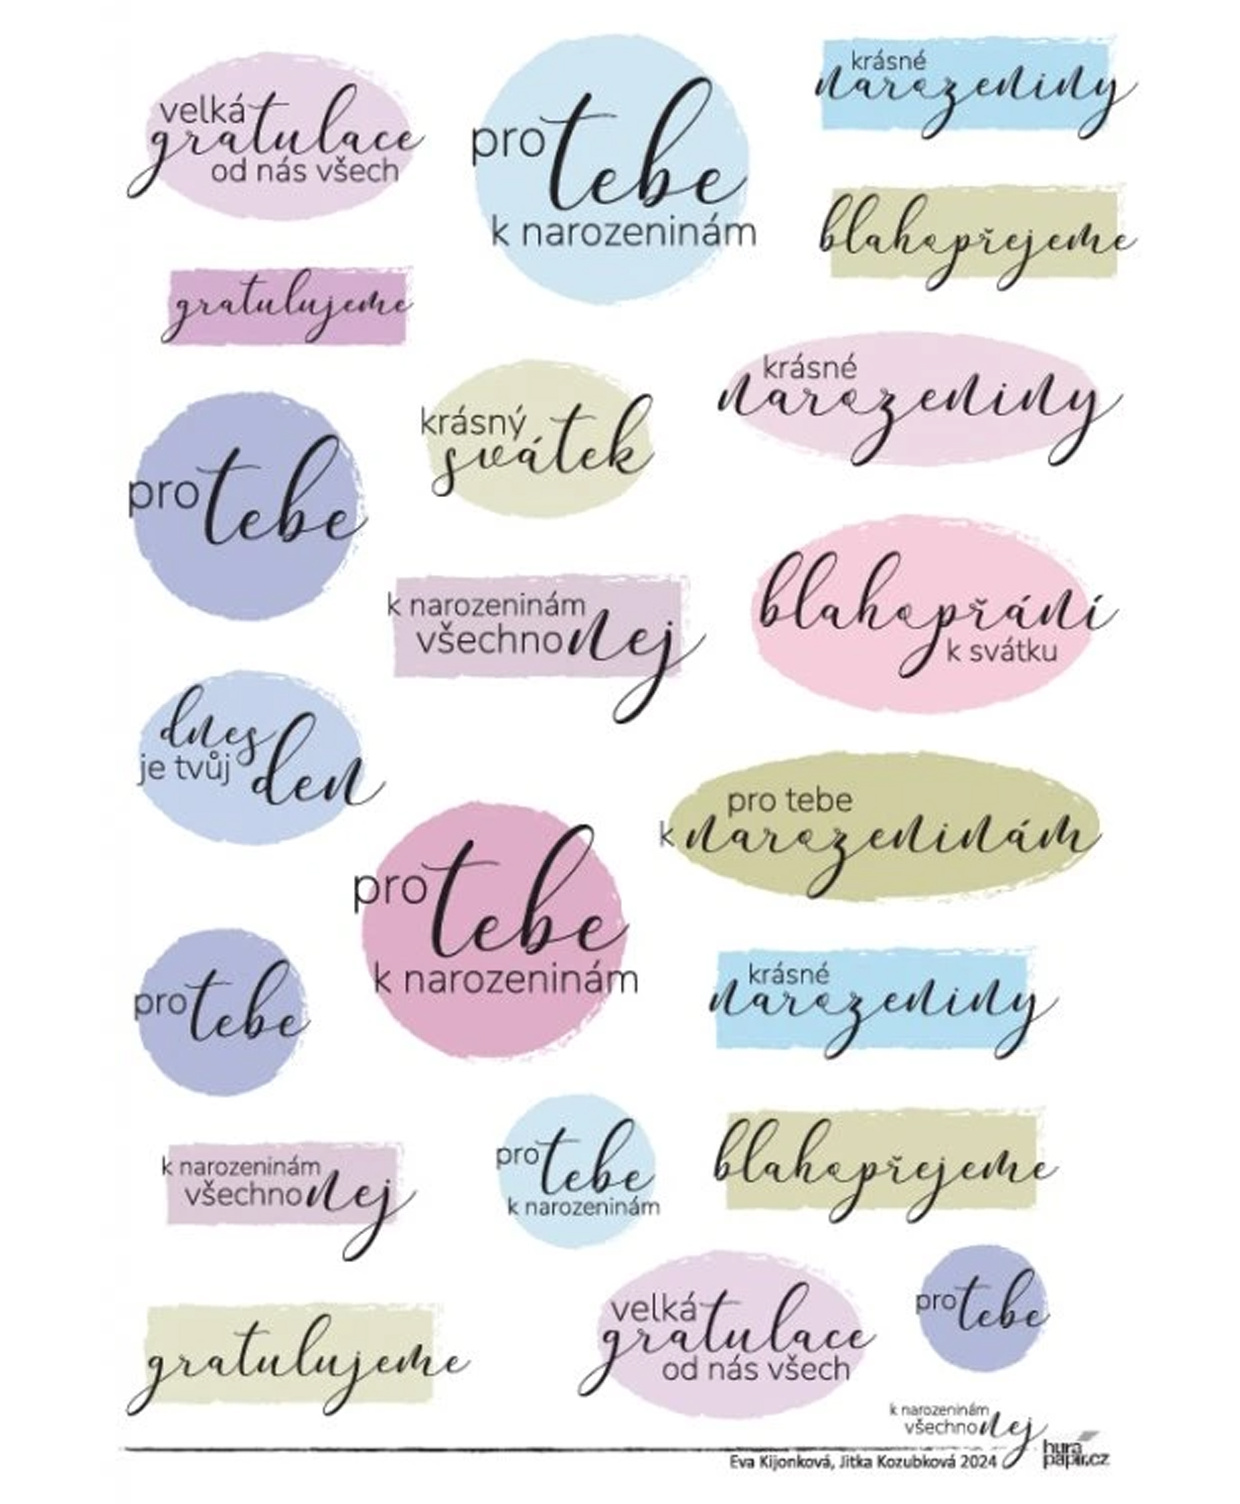 velká
gratulace
od nás všech
pro tebe
k narozeninám
krásné
narozeniny
blahopřejeme
gratulujeme
krásný
svátek
krásné
narozeniny
pro tebe
k narozeninám
všechno nej
blahopřání
k svátku
dnes
je tvůj den
pro tebe
k narozeninám
pro tebe
k narozeninám
pro tebe
krásné
narozeniny
k narozeninám
všechno nej
pro tebe
k narozeninám
blahopřejeme
gratulujeme
velká
gratulace
od nás všech
pro tebe
k narozeninám
všechno nej
Eva Kijonková, Jitka Kozubková 2024
hura
papir.cz